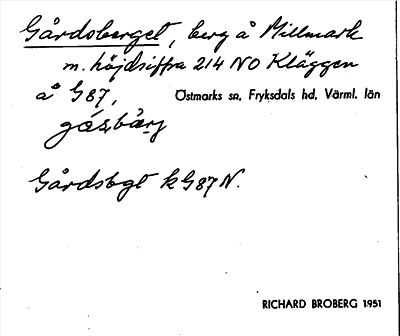 Gårdsberget, berg å Millmark
m. höjdsiffra 214 NO Kläggen
å G87, Östmarks sn, Fryksdals hd, Värml. län
gáṣbærj
Gårdsbgt k G87 N.
RICHARD BROBERG 1951